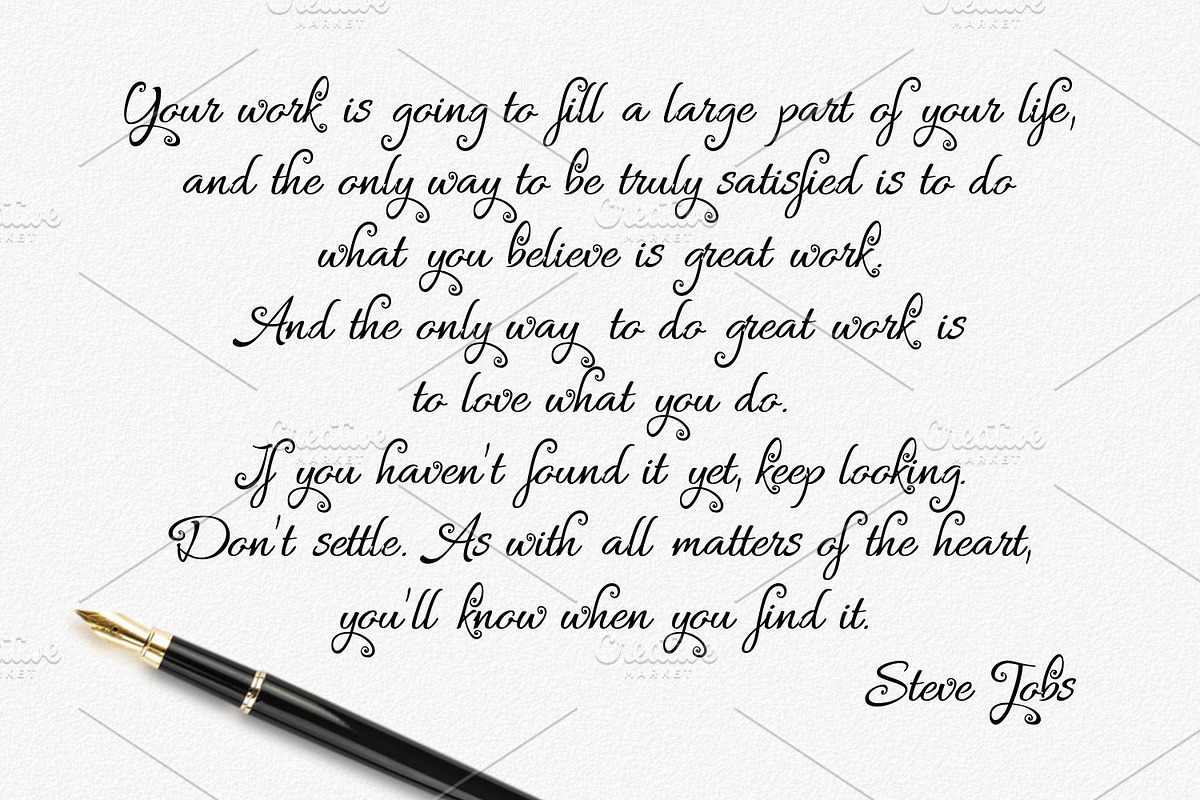 Your work is going to fill a large part of your life,
and the only way to be truly satisfied is to do
what you believe is great work.
And the only way to do great work is
to love what you do.
If you haven't found it yet, keep looking.
Don't settle. As with all matters of the heart,
you'll know when you find it.
Steve Jobs
Creative
MARKET
Creative
MARKET
Creative
MARKET
Creative
MARKET
Creative
MARKET
Creative
MARKET